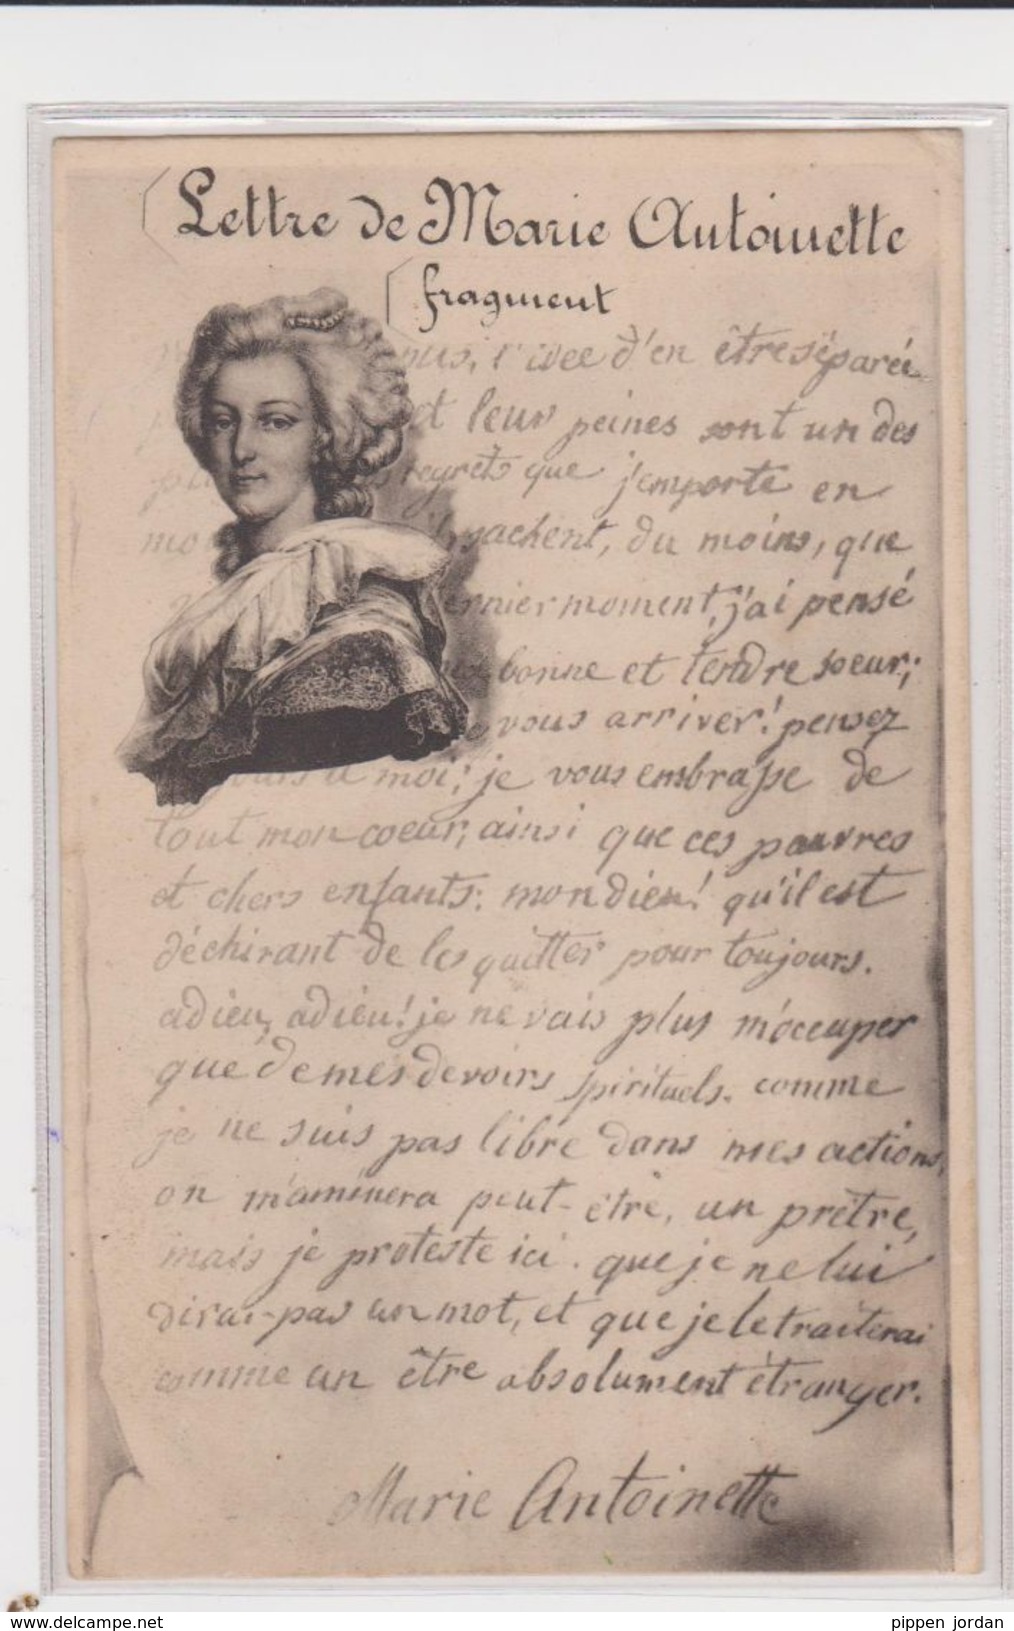 Lettre de Marie Antoinette
fragment
l'idee d'en être séparée
et leurs peines sont un des
regrets que j'emporte en
sachent, du moins, que
dernier moment, j'ai pensé
bonne et tendre soeur;
vous arriver! pensez
à moi; je vous embrasse de
tout mon coeur, ainsi que ces pauvres
et chers enfants: mon dieu! qu'il est
déchirant de les quitter pour toujours.
adieu, adieu! je ne vais plus m'occuper
que de mes devoirs spirituels. comme
je ne suis pas libre dans mes actions,
on m'aminera peut-être, un prêtre,
mais je proteste ici. que je ne lui
dirai-pas un mot, et que je le traiterai
comme un être absolument étranger.
Marie Antoinette
pippen jordan